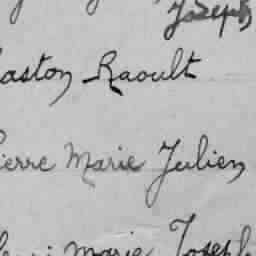 Joseph
aston Raoult
ierre Marie Julien
Marie Joseph